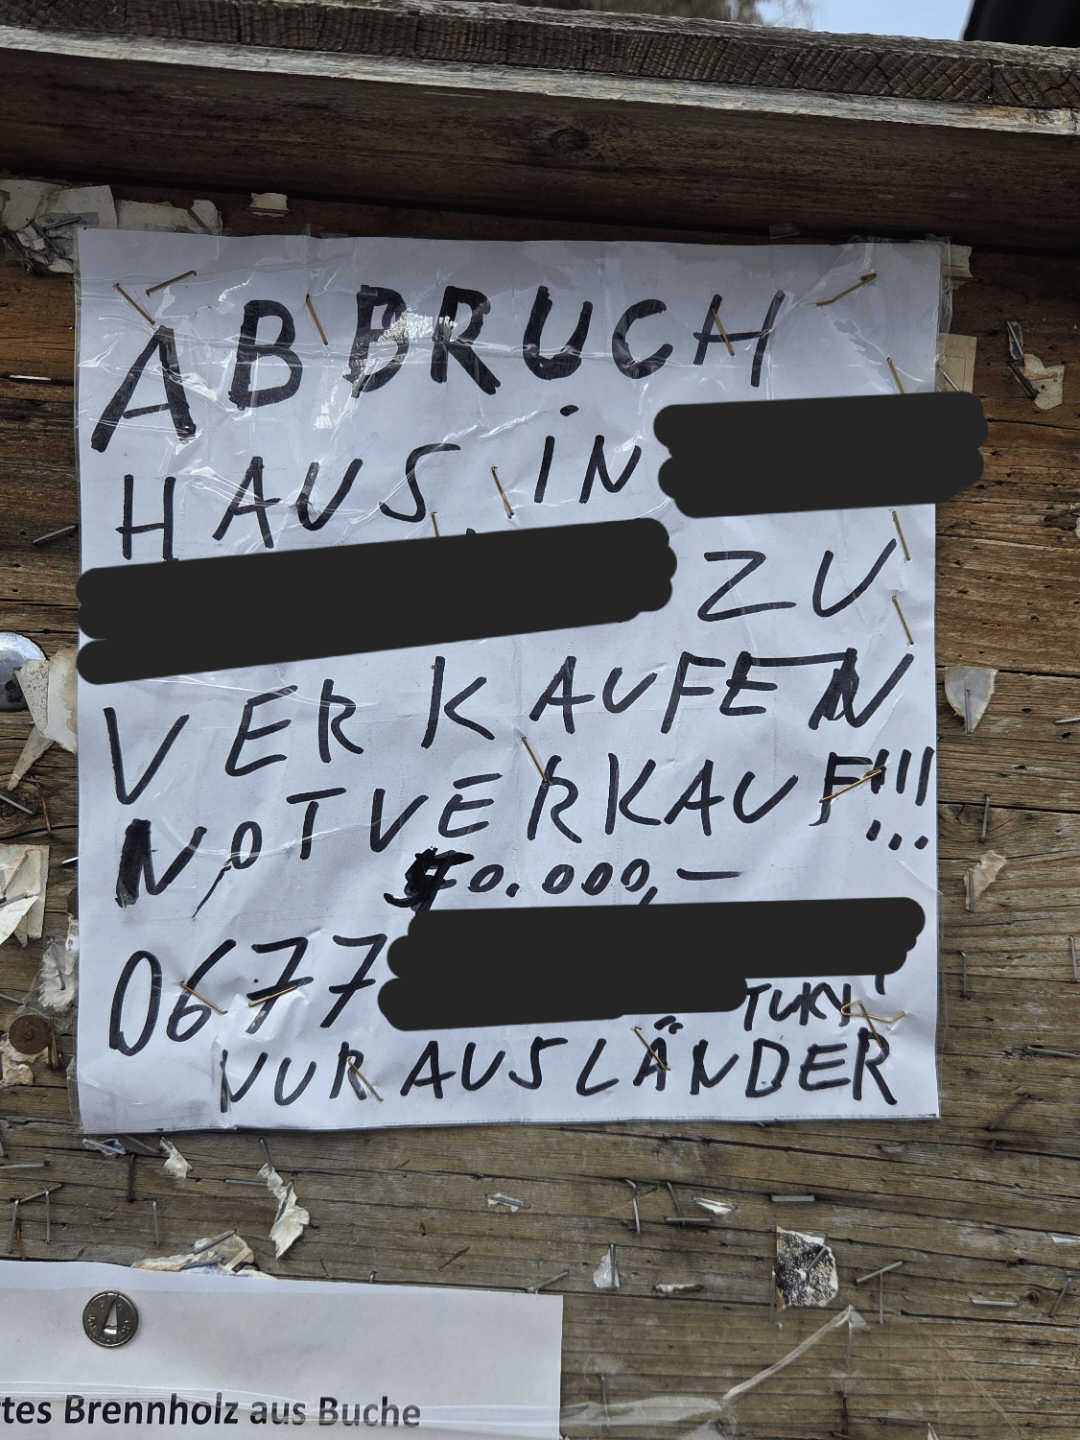 ABBRUCH
HAUS IN
ZU
VERKAUFEN
NOTVERKAUF!!!
0.000,-
0677
NUR AUSLÄNDER
tes Brennholz aus Buche